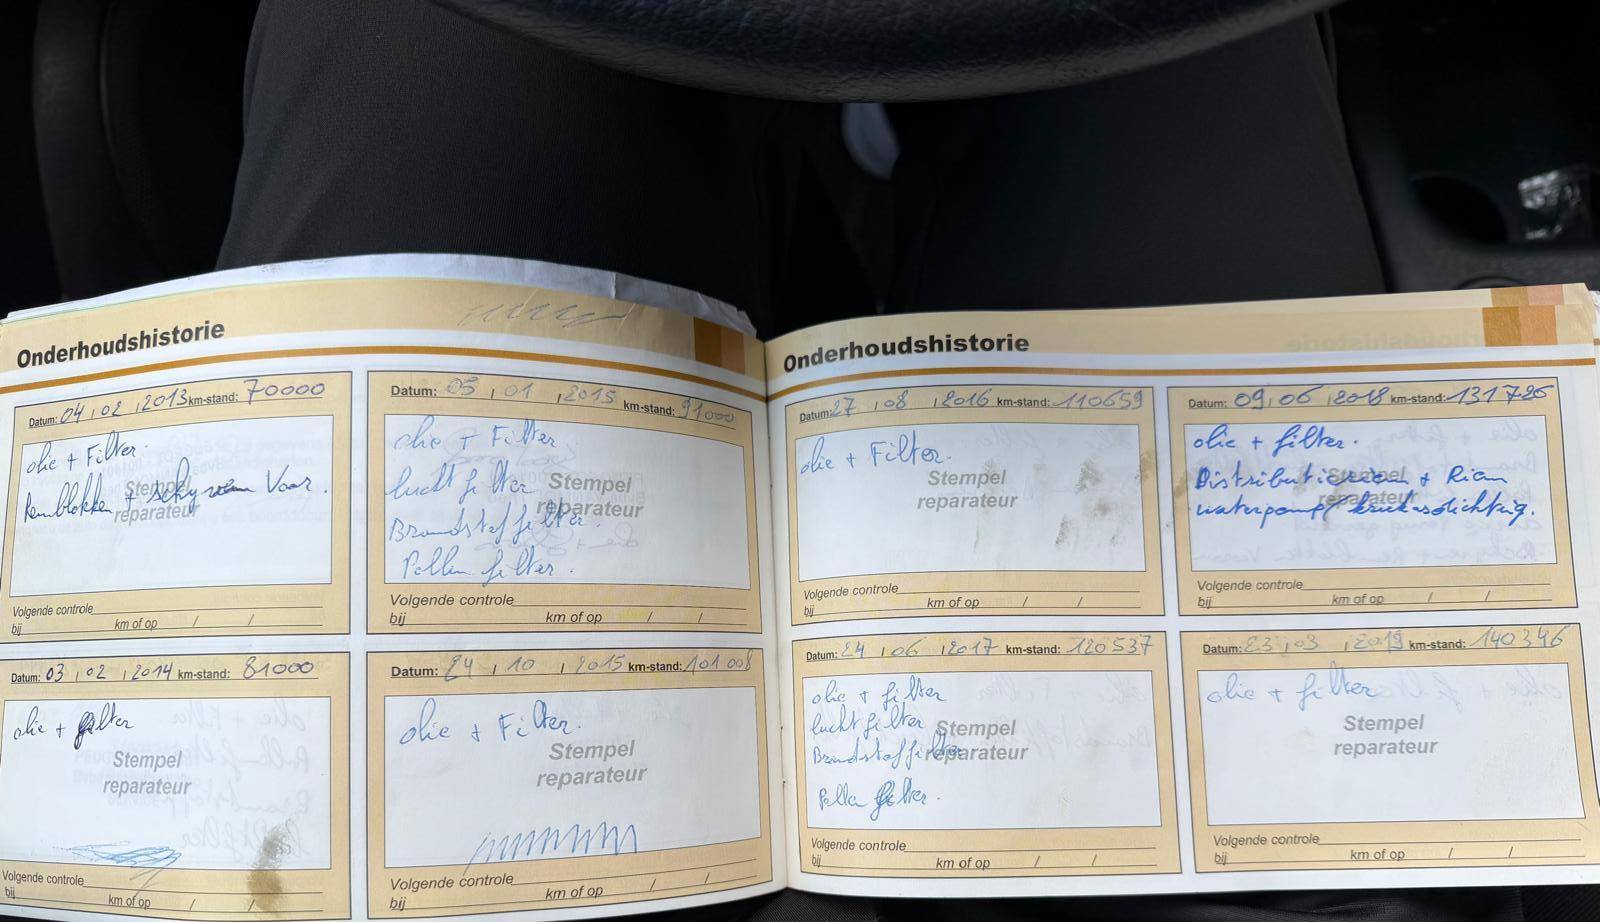 Onderhoudshistorie
Datum: 04 / 02 / 2013 km-stand: 70000
olie + Filter.
Remblokken + schyven Voor.
Stempel
reparateur
Volgende controle
bij km of op / /
Datum: 03 / 02 / 2014 km-stand: 81000
olie + filter
Stempel
reparateur
Volgende controle
bij km of op / /
Datum: 05 / 01 / 2015 km-stand: 91000
olie + Filter
lucht filter
Stempel
reparateur
Brandstoffilter.
Pollen filter.
Volgende controle
bij km of op / /
Datum: 24 / 10 / 2015 km-stand: 101 008
olie + Filter.
Stempel
reparateur
Volgende controle
bij km of op / /
Onderhoudshistorie
Datum: 27 / 08 / 2016 km-stand: 110659
olie + Filter.
Stempel
reparateur
Volgende controle
bij km of op / /
Datum: 24 / 06 / 2017 km-stand: 120537
olie + filter
lucht filter
Stempel
Brandstoffilter
reparateur
Pollen filter.
Volgende controle
bij km of op / /
Datum: 09 / 06 / 2018 km-stand: 131726
olie + filter.
Distributieriem + Riem
Stempel
reparateur
waterpomp krukasdichting.
Volgende controle
bij km of op / /
Datum: 23 / 03 / 2019 km-stand: 140346
olie + filter
Stempel
reparateur
Volgende controle
bij km of op / /